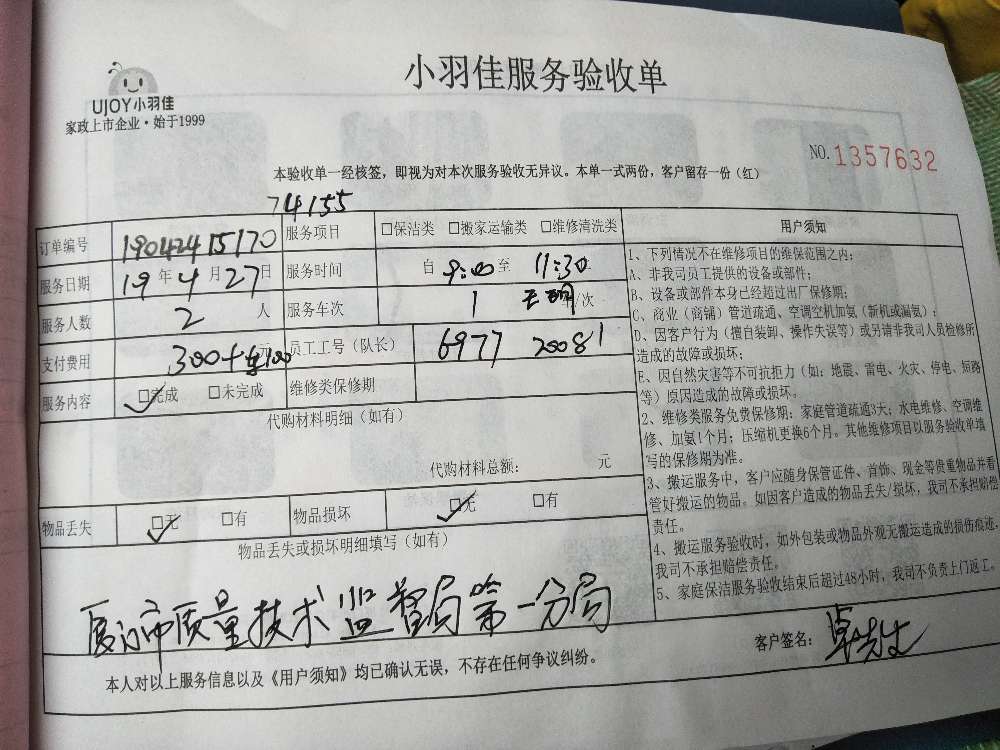 UJOY小羽佳
家政上市企业·始于1999
小羽佳服务验收单
NO.1357632
本验收单一经核签，即视为对本次服务验收无异议。本单一式两份，客户留存一份（红）
74155
订单编号 19042415170 服务项目 □保洁类 □搬家运输类 □维修清洗类
服务日期 19年4月27日 服务时间 自9:00至11:30
服务人数 2人 服务车次 1 /次
支付费用 300+ 元 员工工号（队长） 6977 20081
服务内容 □完成 □未完成 维修类保修期
代购材料明细（如有）
代购材料总额： 元
物品丢失 □无 □有 物品损坏 □无 □有
物品丢失或损坏明细填写（如有）
厦门市质量技术监督局第一分局
本人对以上服务信息以及《用户须知》均已确认无误，不存在任何争议纠纷。
用户须知
1、下列情况不在维修项目的维保范围之内：
A、非我司员工提供的设备或部件；
B、设备或部件本身已经超过出厂保修期；
C、商业（商铺）管道疏通、空调空机加氨（新机或漏氨）；
D、因客户行为（擅自装卸、操作失误等）或另请非我司人员检修所
造成的故障或损坏；
E、因自然灾害等不可抗拒力（如：地震、雷电、火灾、停电、短路
等）原因造成的故障或损坏。
2、维修类服务免费保修期：家庭管道疏通3天；水电维修、空调维
修、加氨1个月；压缩机更换6个月。其他维修项目以服务验收单填
写的保修期为准。
3、搬运服务中，客户应随身保管证件、首饰、现金等贵重物品并看
管好搬运的物品。如因客户造成的物品丢失/损坏，我司不承担赔偿
责任。
4、搬运服务验收时，如外包装或物品外观无搬运造成的损伤痕迹，
我司不承担赔偿责任。
5、家庭保洁服务验收结束后超过48小时，我司不负责上门返工。
客户签名：